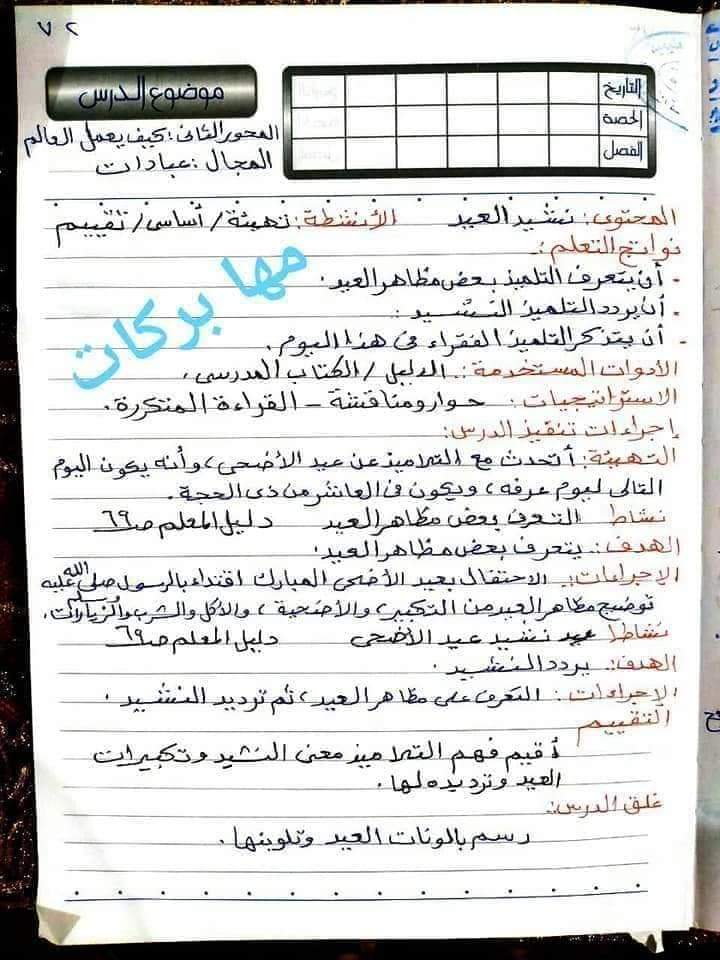 ٧٢
موضوع الدرس
التاريخ
الحصة
الفصل
المحور الثانى : كيف يعمل العالم
المجال : عبادات
المحتوى : نشيد العيد الأنشطة : تهيئة / أساسى / تقييم
نواتج التعلم :
- أن يتعرف التلميذ بعض مظاهر العيد .
- أن يردد التلميذ النشيد .
- أن يتذكر التلميذ الفقراء فى هذا اليوم .
الأدوات المستخدمة : الدليل / الكتاب المدرسى .
الاستراتيجيات : حوار ومناقشة - القراءة المتكررة .
إجراءات تنفيذ الدرس :
التهيئة : أتحدث مع التلاميذ عن عيد الأضحى ، وأنه يكون اليوم
التالى ليوم عرفه ، ويكون فى العاشر من ذى الحجة .
نشاط التعرف بعض مظاهر العيد دليل المعلم صـ ٦٩
الهدف : يتعرف بعض مظاهر العيد .
الإجراءات : الاحتفال بعيد الأضحى المبارك اقتداء بالرسول صلى الله عليه وسلم
توضيح مظاهر العيد من التكبير ، والأضحية ، والأكل والشرب والزيارات .
نشاط نشيد عيد الأضحى دليل المعلم صـ ٦٩
الهدف : يردد النشيد .
الإجراءات : التعرف على مظاهر العيد ، ثم ترديد النشيد .
التقييم
أقيم فهم التلاميذ معنى النشيد وتكبيرات
العيد وترديده لها .
غلق الدرس :
رسم بالونات العيد وتلوينها .
مها بركات